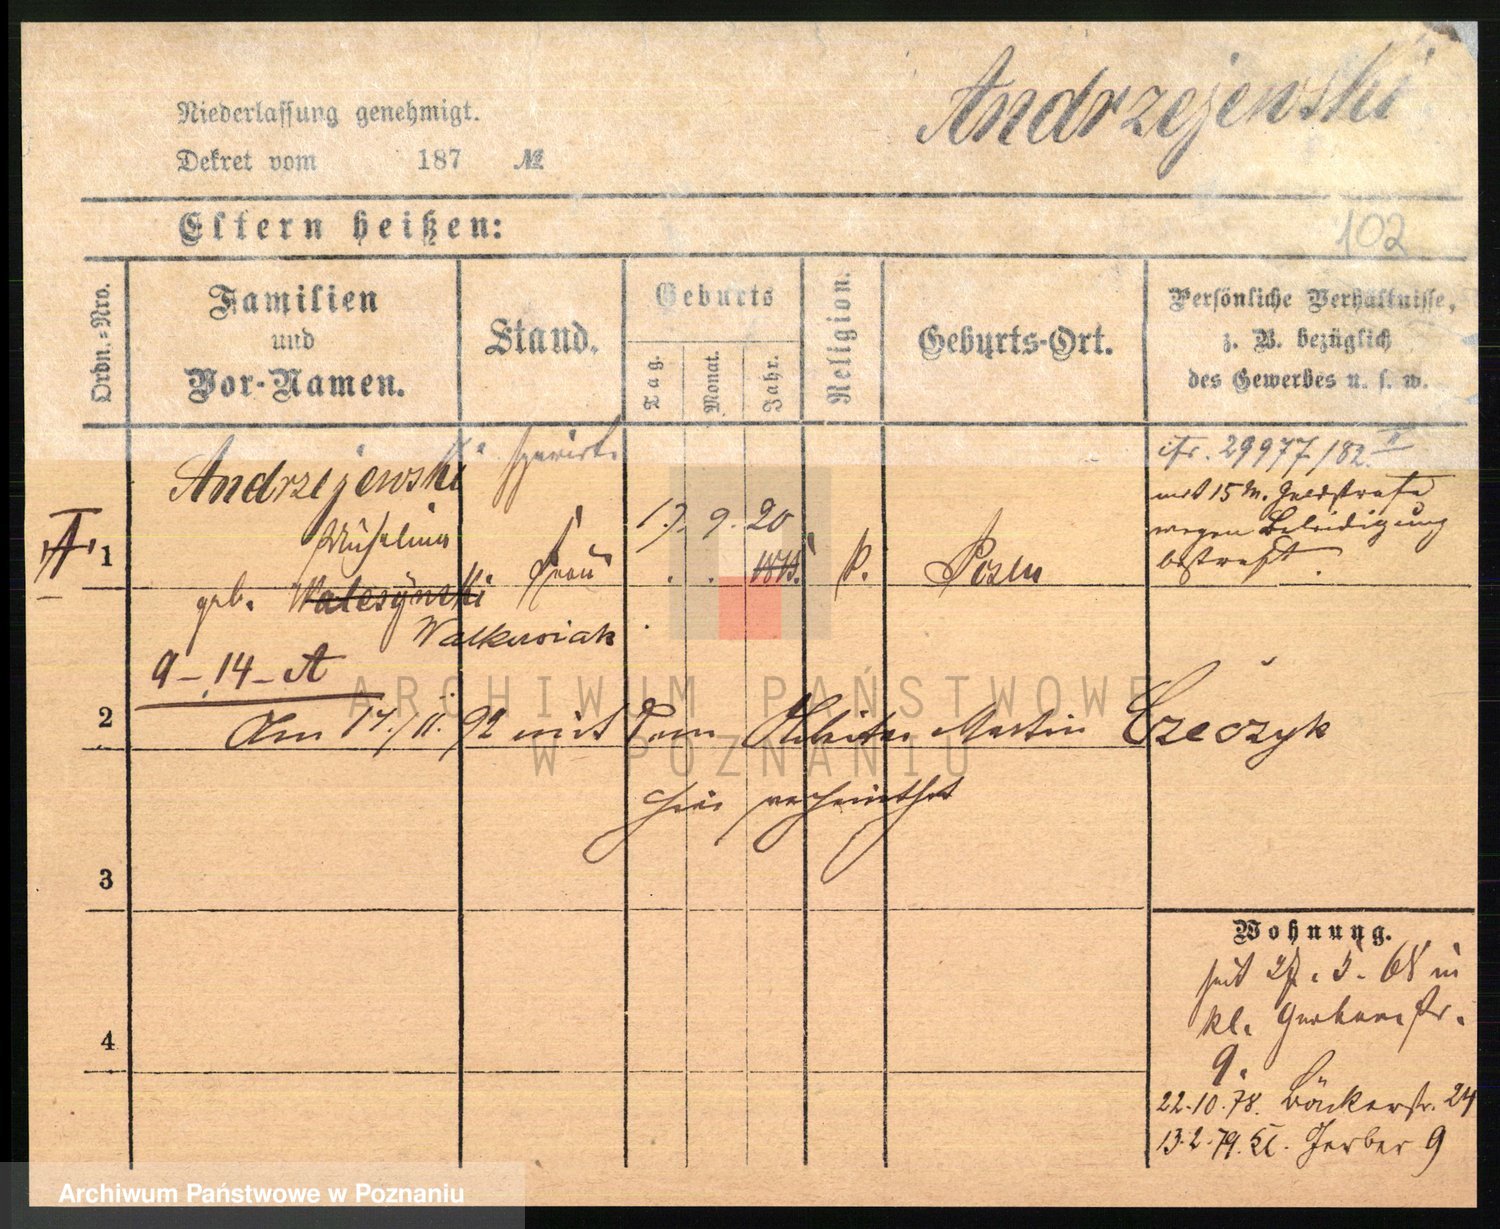 Andrzejewski
Niederlassung genehmigt.
Dekret vom 187 №
Eltern heißen:
102
Ordn.-Nro.
Familien
und
Vor-Namen.
Stand.
Geburts
Tag.
Monat.
Jahr.
Religion.
Geburts-Ort.
Persönliche Verhältnisse,
z. B. bezüglich
des Gewerbes u. s. w.
Andrzejewski separirte
Wilhelmine Frau
geb. Walczynski
Walkowiak
1
9. 20
1843. k. Posen
29977/82. II
mit 15 M. Geldstrafe
wegen Beleidigung
bestraft.
9-14-A
2
Am 17./11. 92 mit dem Arbeiter Martin Czeczyk
hier verheirathet
3
4
Wohnung.
seit 27. 3. 68 in
kl. Gerberstr.
9.
22.10.78. Bäckerstr. 24
13.2.79. kl. Gerber 9
ARCHIWUM PAŃSTWOWE
W POZNANIU
Archiwum Państwowe w Poznaniu